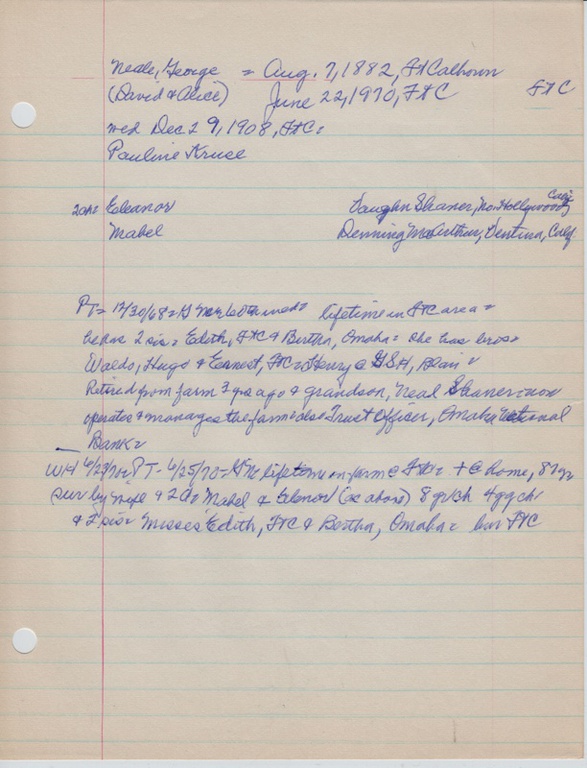 Neale, George = Aug. 7, 1882, FtCalhoun
(David & Alice) June 22, 1970, FtC FtC
wed Dec 29, 1908, FtC =
Pauline Kruse
2ch = Eleanor Vaughn Shaner, No. Hollywood, Calif
Mabel Denning McArthur, Ventura, Calif
PT = 12/30/68 = lifetime in FtC area =
he has 2 sis = Edith, FtC & Bertha, Omaha = she has bros =
Waldo, Hugo & Earnest, FtC = Henry @ GSH, Blair =
Retired from farm 3 yrs ago & grandson, Neal Shaner = now
operates & manages the farm = also Trust Officer, Omaha National
Bank =
WH PT - 6/25/70 = lifetime on farm @ FtC = @ home, 87 yr
sur by wife & 2 d = Mabel & Elenor (as above) 8 gr ch 4 gg ch
& 2 sis = Misses Edith, FtC & Bertha, Omaha = bur FtC